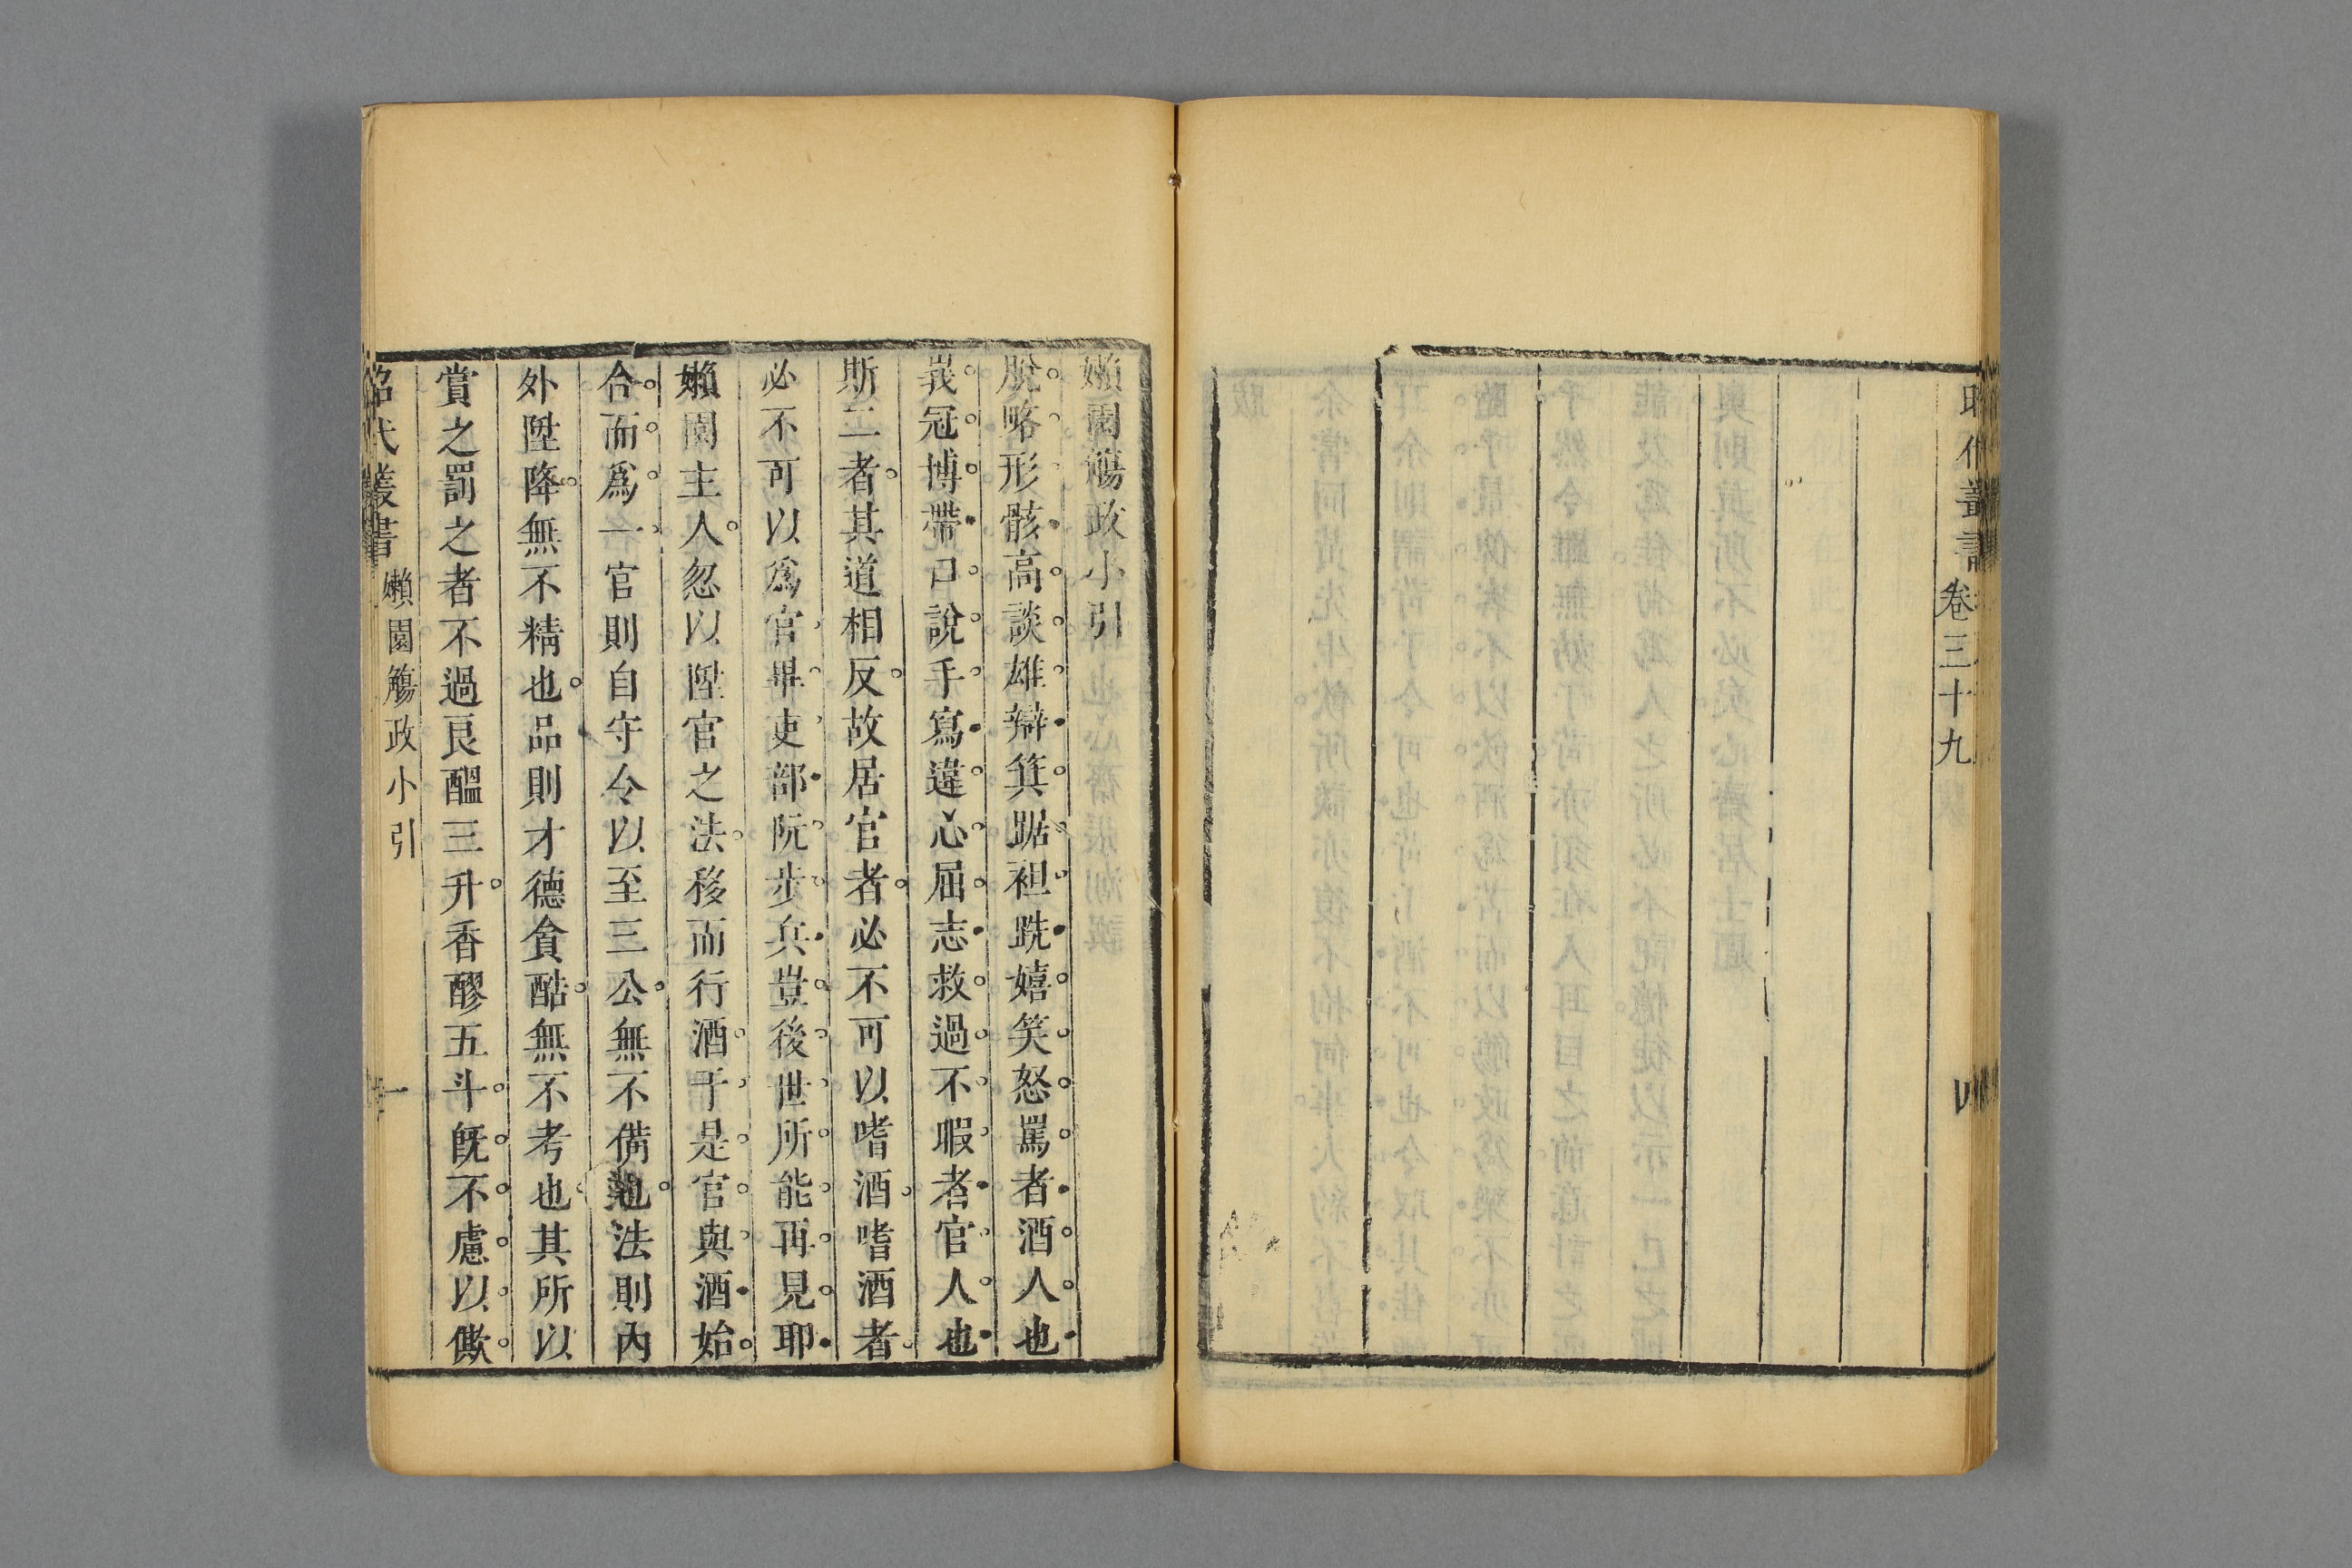 昭代叢書
卷三十九
嬾園觴政小引
脫略形骸高談雄辯箕踞袒跣嬉笑怒罵者酒人也
峩冠博帶口說手寫違心屈志救過不暇者官人也
斯二者其道相反故居官者必不可以嗜酒嗜酒者
必不可以爲官畢吏部阮步兵豈後世所能再見耶
嬾園主人忽以陞官之法移而行酒于是官與酒始
合而爲一官則自守令以至三公無不備也法則內
外陞降無不精也品則才德貪酷無不考也其所以
賞之罰之者不過良醞三升香醪五斗旣不慮以僛
昭代叢書
嬾園觴政小引
一